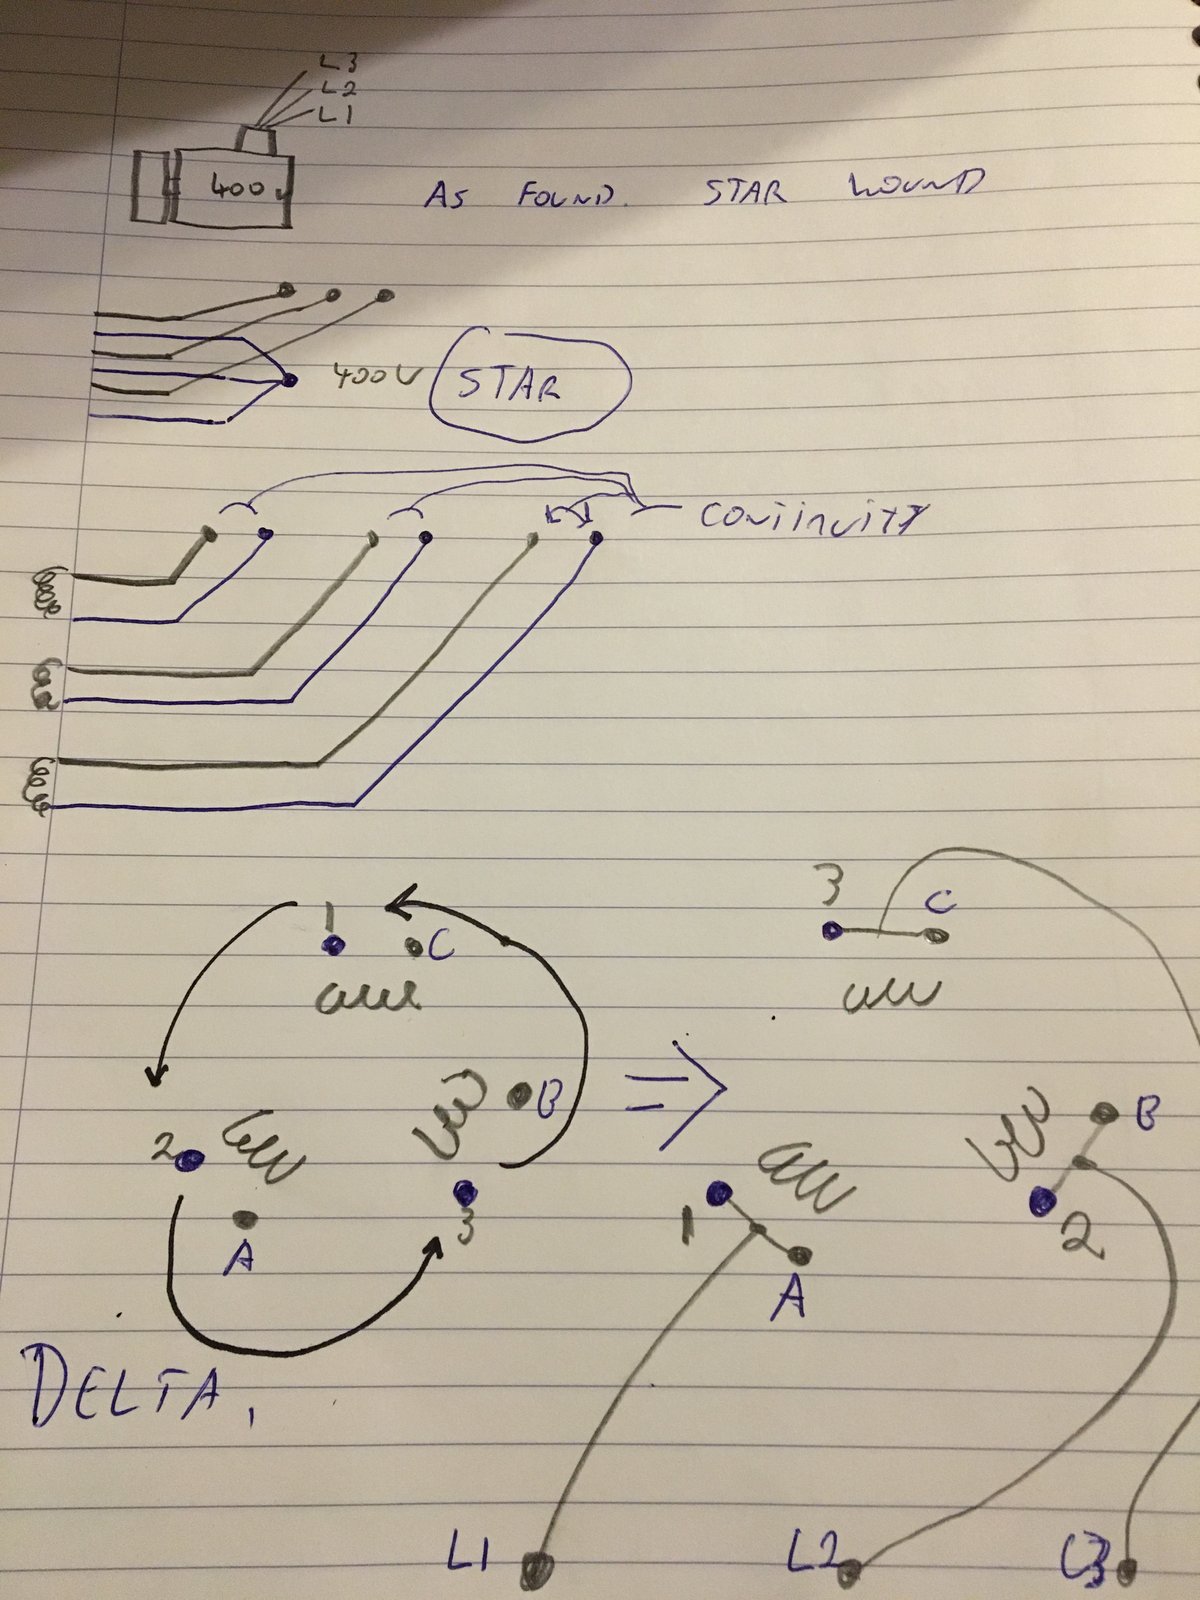 L3
L2
L1
400V
AS FOUND. STAR WOUND
400V STAR
CONTINUITY
1 C
3 C
B
2
A
3
B
1
A
2
DELTA.
L1 L2 L3